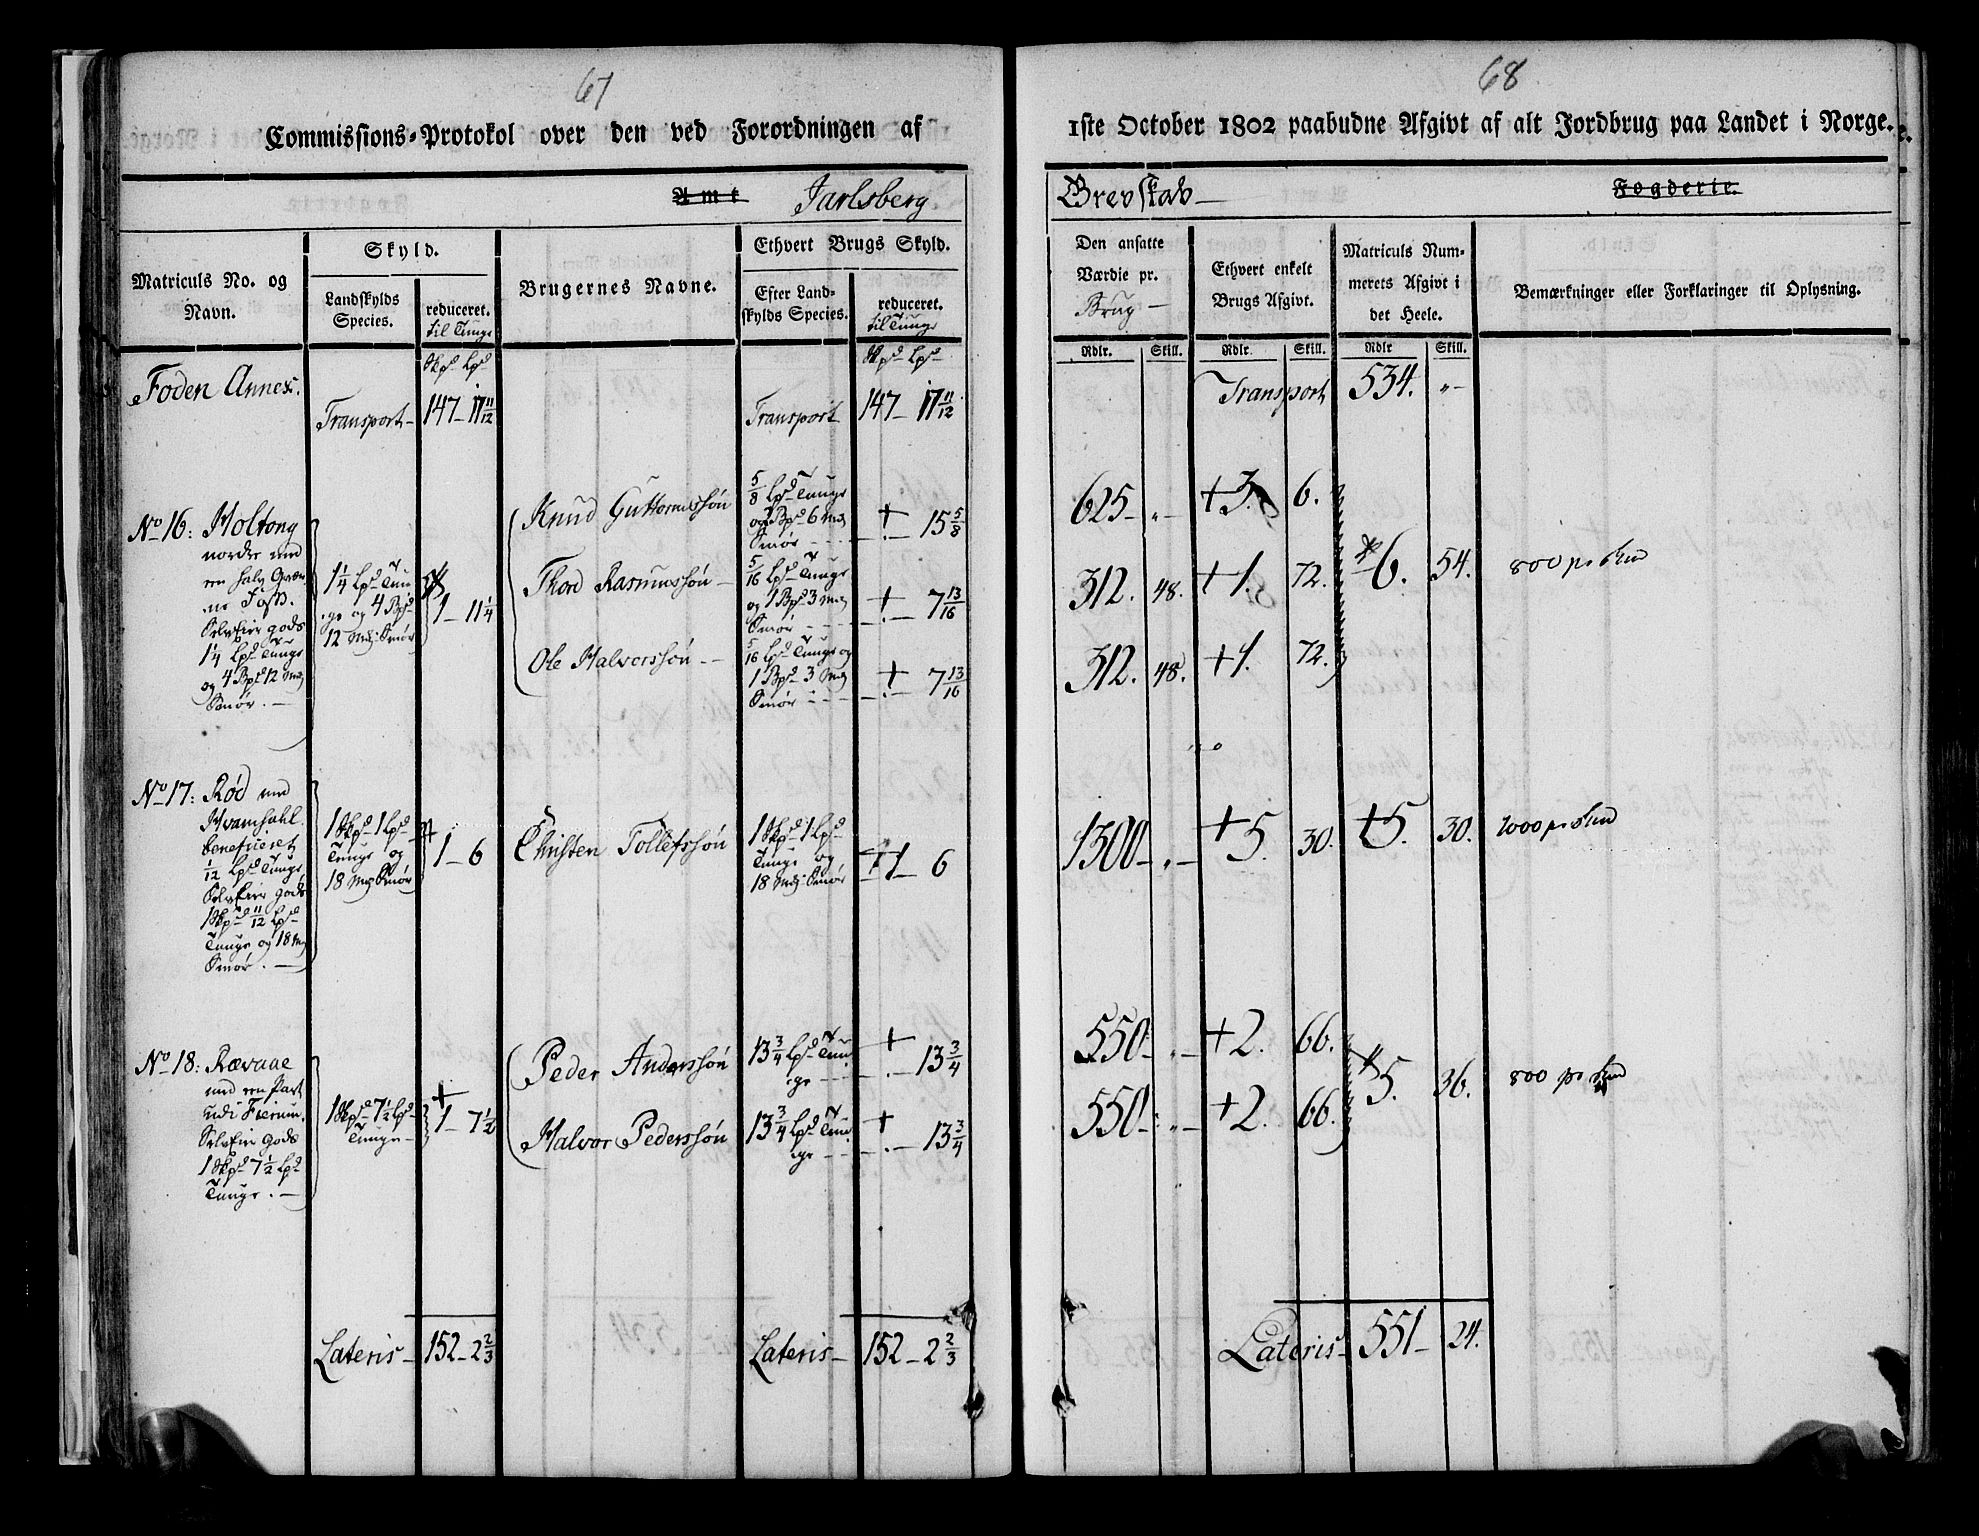 67
Commissions-Protokol over den ved Forordningen af
Amt Jarlsberg
Matriculs No. og Navn.
Skyld.
Landskylds Species.
reduceret.
til Tunge
Brugernes Navne.
Ethvert Brugs Skyld.
Efter Landskylds Species.
reduceret.
til Tunge
Skpd Lpd
Skpd Lpd
Foden Annex.
Transport- 147- 17 11/12
Transport 147- 17 11/12
No 16: Holtong
nordre med
en halv
Selveier gods
1 1/4 Lpd Tunge
og 4 Bpd 12 Mrk
Smør. -
1 1/4 Lpd Tun
ge og 4 Bpd
12 Mrk Smør
1- 11 1/4
Knud Guttormssøn
5/8 Lpd Tunge
og 3 Bpd 6 Mrk
Smør
15 5/8
Thord Rasmussøn-
5/16 Lpd Tunge
og 1 Bpd 3 Mrk
Smør
7 13/16
Ole Halvorssøn--
5/16 Lpd Tunge og
1 Bpd 3 Mrk
Smør
7 13/16
No 17: Rød med
Hvamdahl
beneficeret
1/12 Lpd Tunge
Selveier gods
1 Skpd 11/12 Lpd
Tunge og 18 Mrk
Smør. -
1 Skpd 1 Lpd
Tunge og
18 Mrk Smør
1- 6
Christen Tollefssøn
1 Skpd 1 Lpd
Tunge og
18 Mrk Smør
1- 6
No 18: Rævaae
med en Part
udi
Selveier gods
1 Skpd 7 1/2 Lpd
Tunge. -
1 Skpd 7 1/2 Lpd
Tunge-
1- 7 1/2
Peder Anderssøn
13 3/4 Lpd Tun
ge
13 3/4
Halvor Pederssøn
13 3/4 Lpd Tun
ge
13 3/4
Lateris- 152- 2 2/3
Lateris- 152- 2 2/3
68
1ste October 1802 paabudne Afgivt af alt Jordbrug paa Landet i Norge.
Grevskab- Fogderie.
Den ansatte Værdie pr. Brug-
Ethvert enkelt Brugs Afgivt.
Matriculs Nummerets Afgivt i det Heele.
Bemærkninger eller Forklaringer til Oplysning.
Rdlr. Skill. Rdlr Skill. Rdlr Skill.
Transport 534. "-
625- "- +3. 6.
312. 48. +1. 72. 6. 54. 800
312. 48. +1. 72.
1300- "- +5. 30. +5. 30. 1000
550- "- +2. 66.
5. 36. 800
550- "- +2. 66.
Lateris- 551- 24.